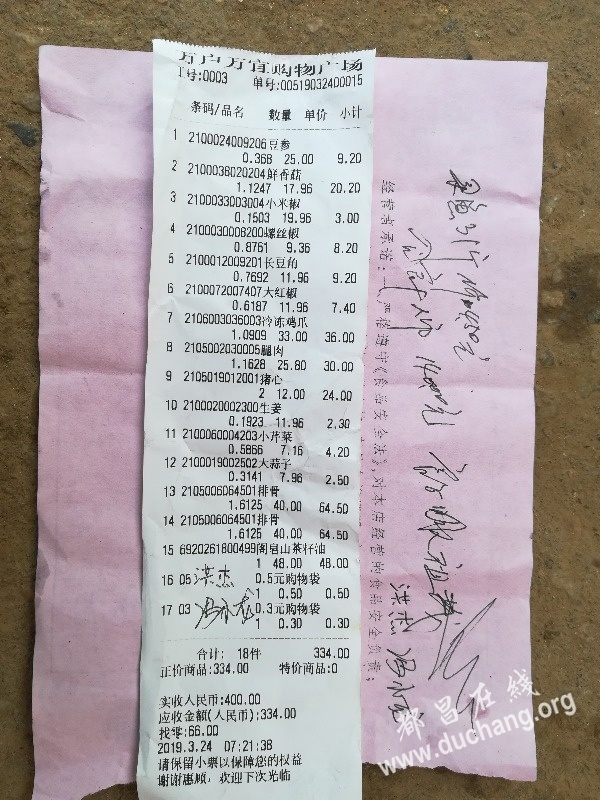 万户万宜购物广场
工号:0003 单号:00519032400015
条码/品名 数量 单价 小计
1 2100024009206豆参
0.368 25.00 9.20
2 2100038020204鲜香菇
1.1247 17.96 20.20
3 2100033003004小米椒
0.1503 19.96 3.00
4 2100030006200螺丝椒
0.8761 9.36 8.20
5 2100012009201长豆角
0.7692 11.96 9.20
6 2100072007407大红椒
0.6187 11.96 7.40
7 2106003036003冷冻鸡爪
1.0909 33.00 36.00
8 2105002030005腿肉
1.1628 25.80 30.00
9 2105019012001猪心
2 12.00 24.00
10 2100020002300生姜
0.1923 11.96 2.30
11 2100060004203小芹菜
0.5866 7.16 4.20
12 2100019002502大蒜子
0.3141 7.96 2.50
13 2105006064501排骨
1.6125 40.00 64.50
14 2105006064501排骨
1.6125 40.00 64.50
15 6920261800499阁皂山茶籽油
1 48.00 48.00
16 05 洪杰 0.5元购物袋
1 0.50 0.50
17 03 0.3元购物袋
1 0.30 0.30
合计: 18件 334.00
正价商品:334.00 特价商品:0
实收人民币:400.00
应收金额(人民币):334.00
找零:66.00
2019.3.24 07:21:38
请保留小票以保障您的权益
谢谢惠顾，欢迎下次光临
经营者承诺：一、严格遵守《食品安全法》，对本店经营的食品安全负责；
洪杰
都昌在线
www.duchang.org